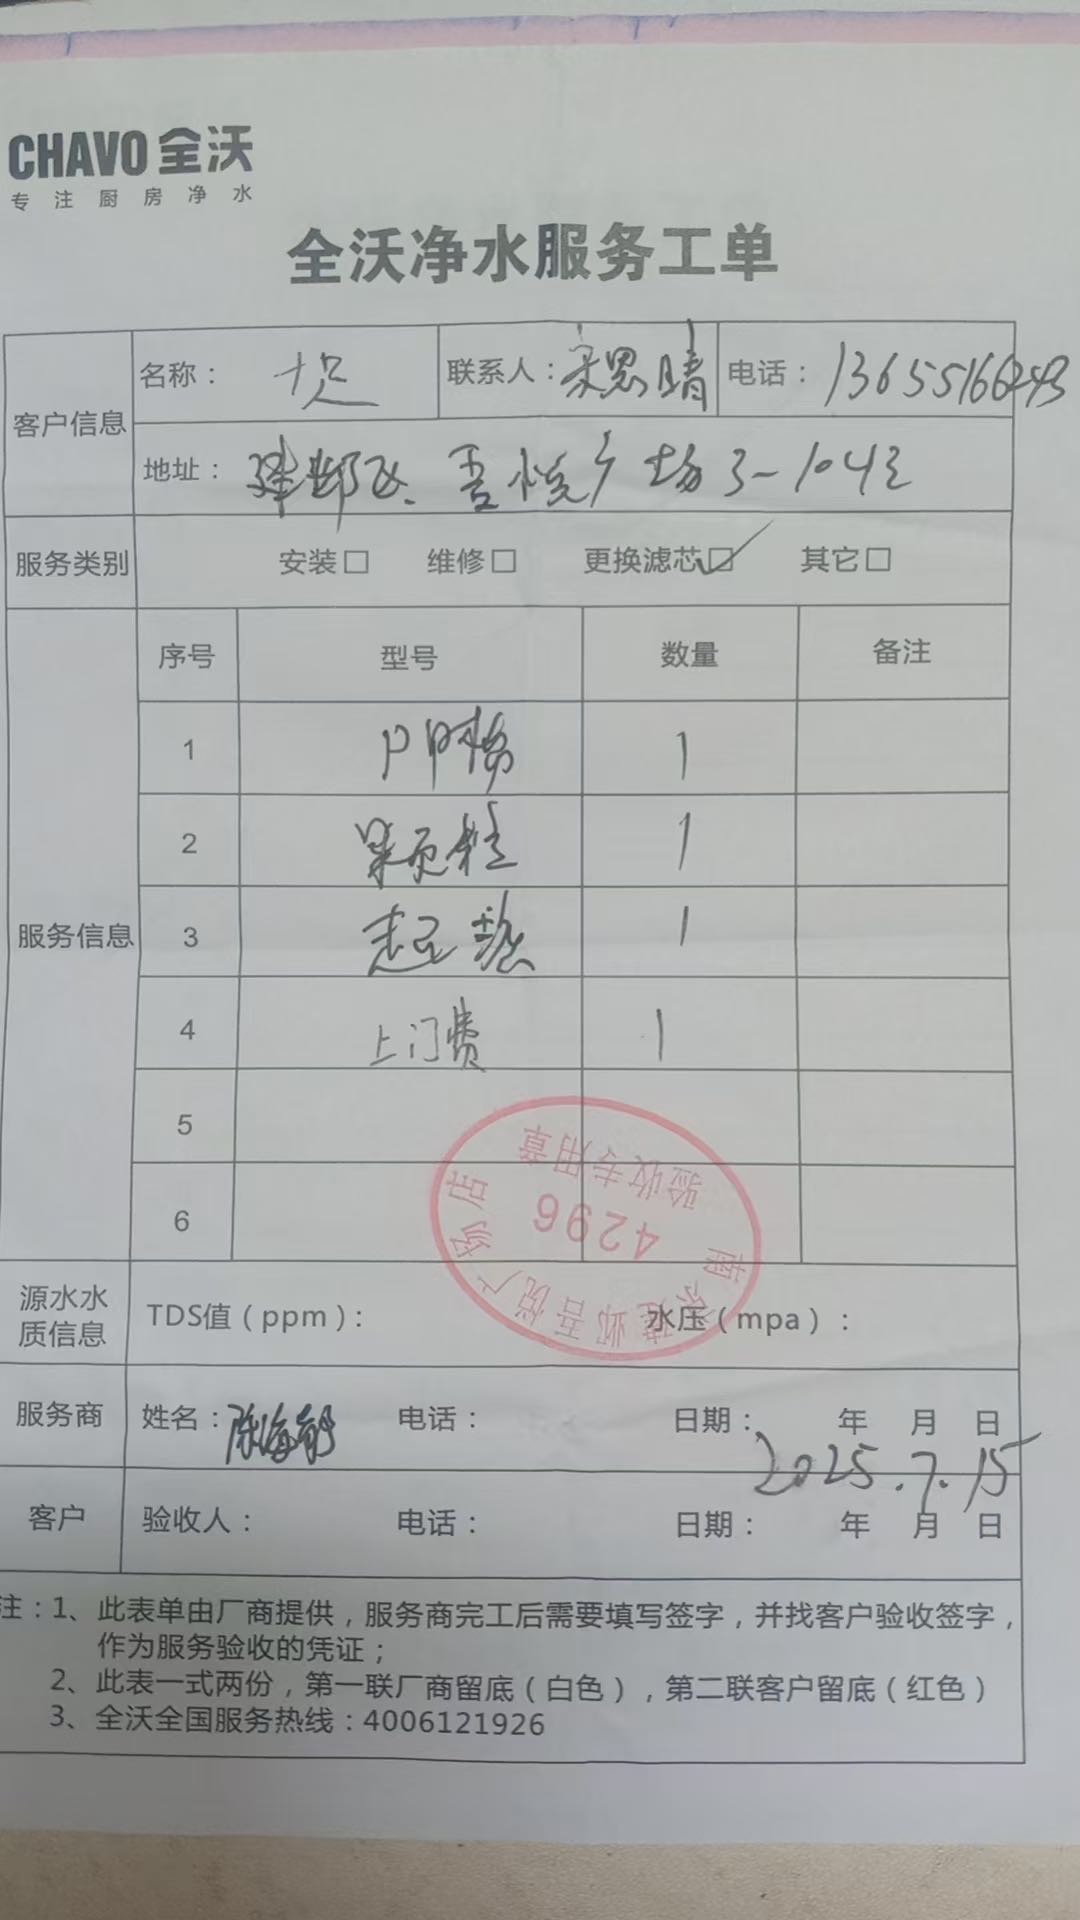 CHAVO 全沃
专注厨房净水
全沃净水服务工单
客户信息
名称： 十足
联系人： 宋思晴
电话： 13655166243
地址： 建邺区 吾悦广场3-1043
服务类别 安装□ 维修□ 更换滤芯□✓ 其它□
服务信息
序号 型号 数量 备注
1 PP棉 1
2 1
3 1
4 上门费 1
5
6
南京建邺吾悦广场店
4296
验收专用章
源水水质信息
TDS值（ppm）： 水压（mpa）：
服务商 姓名： 电话： 日期： 年 月 日
2025.7.15
客户 验收人： 电话： 日期： 年 月 日
注：1、此表单由厂商提供，服务商完工后需要填写签字，并找客户验收签字，
作为服务验收的凭证；
2、此表一式两份，第一联厂商留底（白色），第二联客户留底（红色）
3、全沃全国服务热线：4006121926